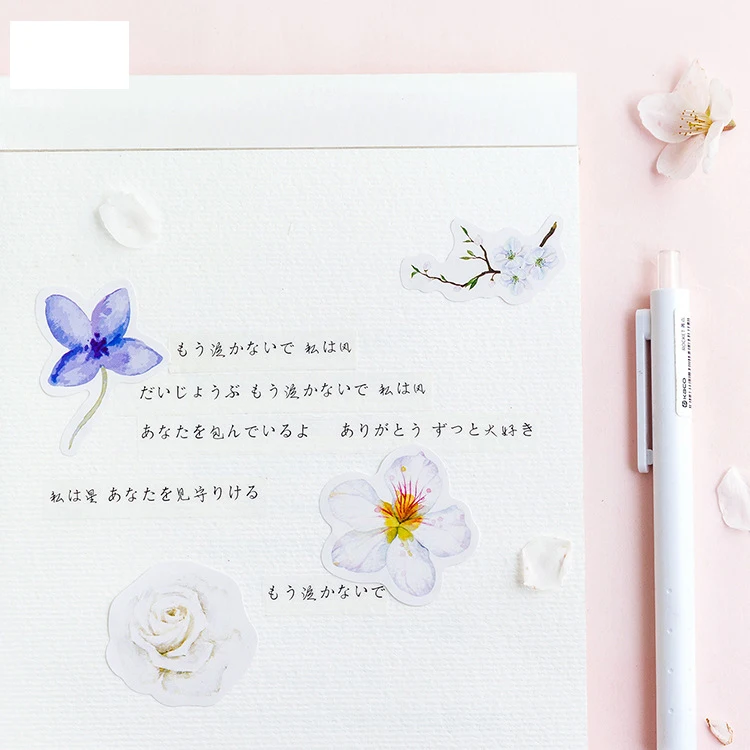 もう泣かないで 私は风
だいじょうぶ もう泣かないで 私は风
あなたを包んでいるよ ありがとう ずつと大好き
私は星 あなたを見守りける
もう泣かないで
ROCKET
KACO